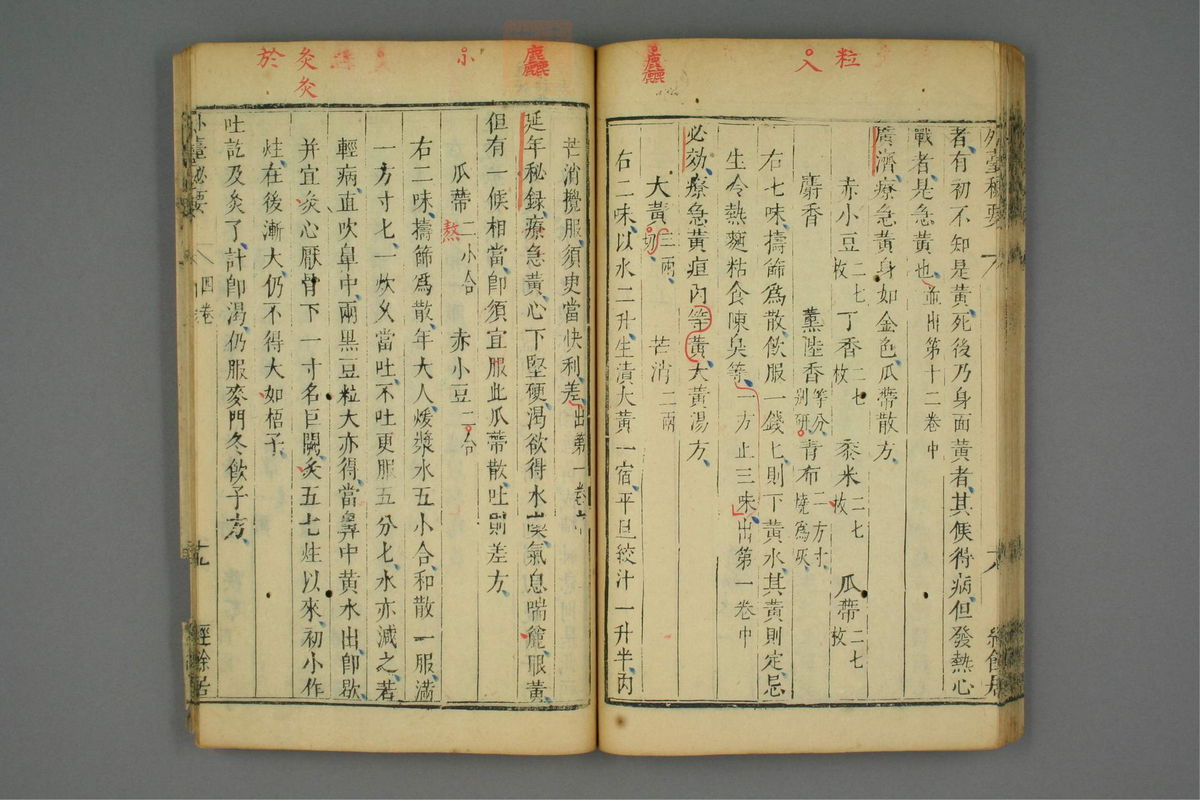 入 粒
麤
外臺秘要
者有初不知是黃死後乃身面黃者其候得病但發熱心
戰者是急黃也並出第十二卷中
廣濟療急黃身如金色瓜蔕散方
赤小豆二七枚 丁香二七枚 黍米二七枚 瓜蔕二七枚
麝香 薰陸香等分別研 青布二方寸燒為灰
右七味擣篩爲散飲服一錢匕則下黃水其黃則定忌
生冷熱麵粘食陳臭等一方止三味出第一卷中
必効療急黃疸內等黃大黃湯方
大黃三兩切 芒消二兩
右二味以水二升生漬大黃一宿平旦絞汁一升半內
麤
小
炙炙
於
芒消攪服須臾當快利差出第一卷中
延年秘録療急黃心下堅硬渴欲得水喫氣息喘麄眼黃
但有一候相當卽須宜服此瓜蔕散吐則差方
瓜蔕二小合熬 赤小豆二合
右二味擣篩爲散年大人煖漿水五小合和散一服滿
一方寸匕一炊久當吐不吐更服五分匕水亦減之若
輕病直吹鼻中兩黑豆粒大亦得當鼻中黃水出卽歇
并宜灸心厭骨下一寸名巨闕灸五七炷以來初小作
炷在後漸大仍不得大如梧子
吐訖及灸了計卽渴仍服麥門冬飲子方
外臺秘要 四卷 十九 經餘居